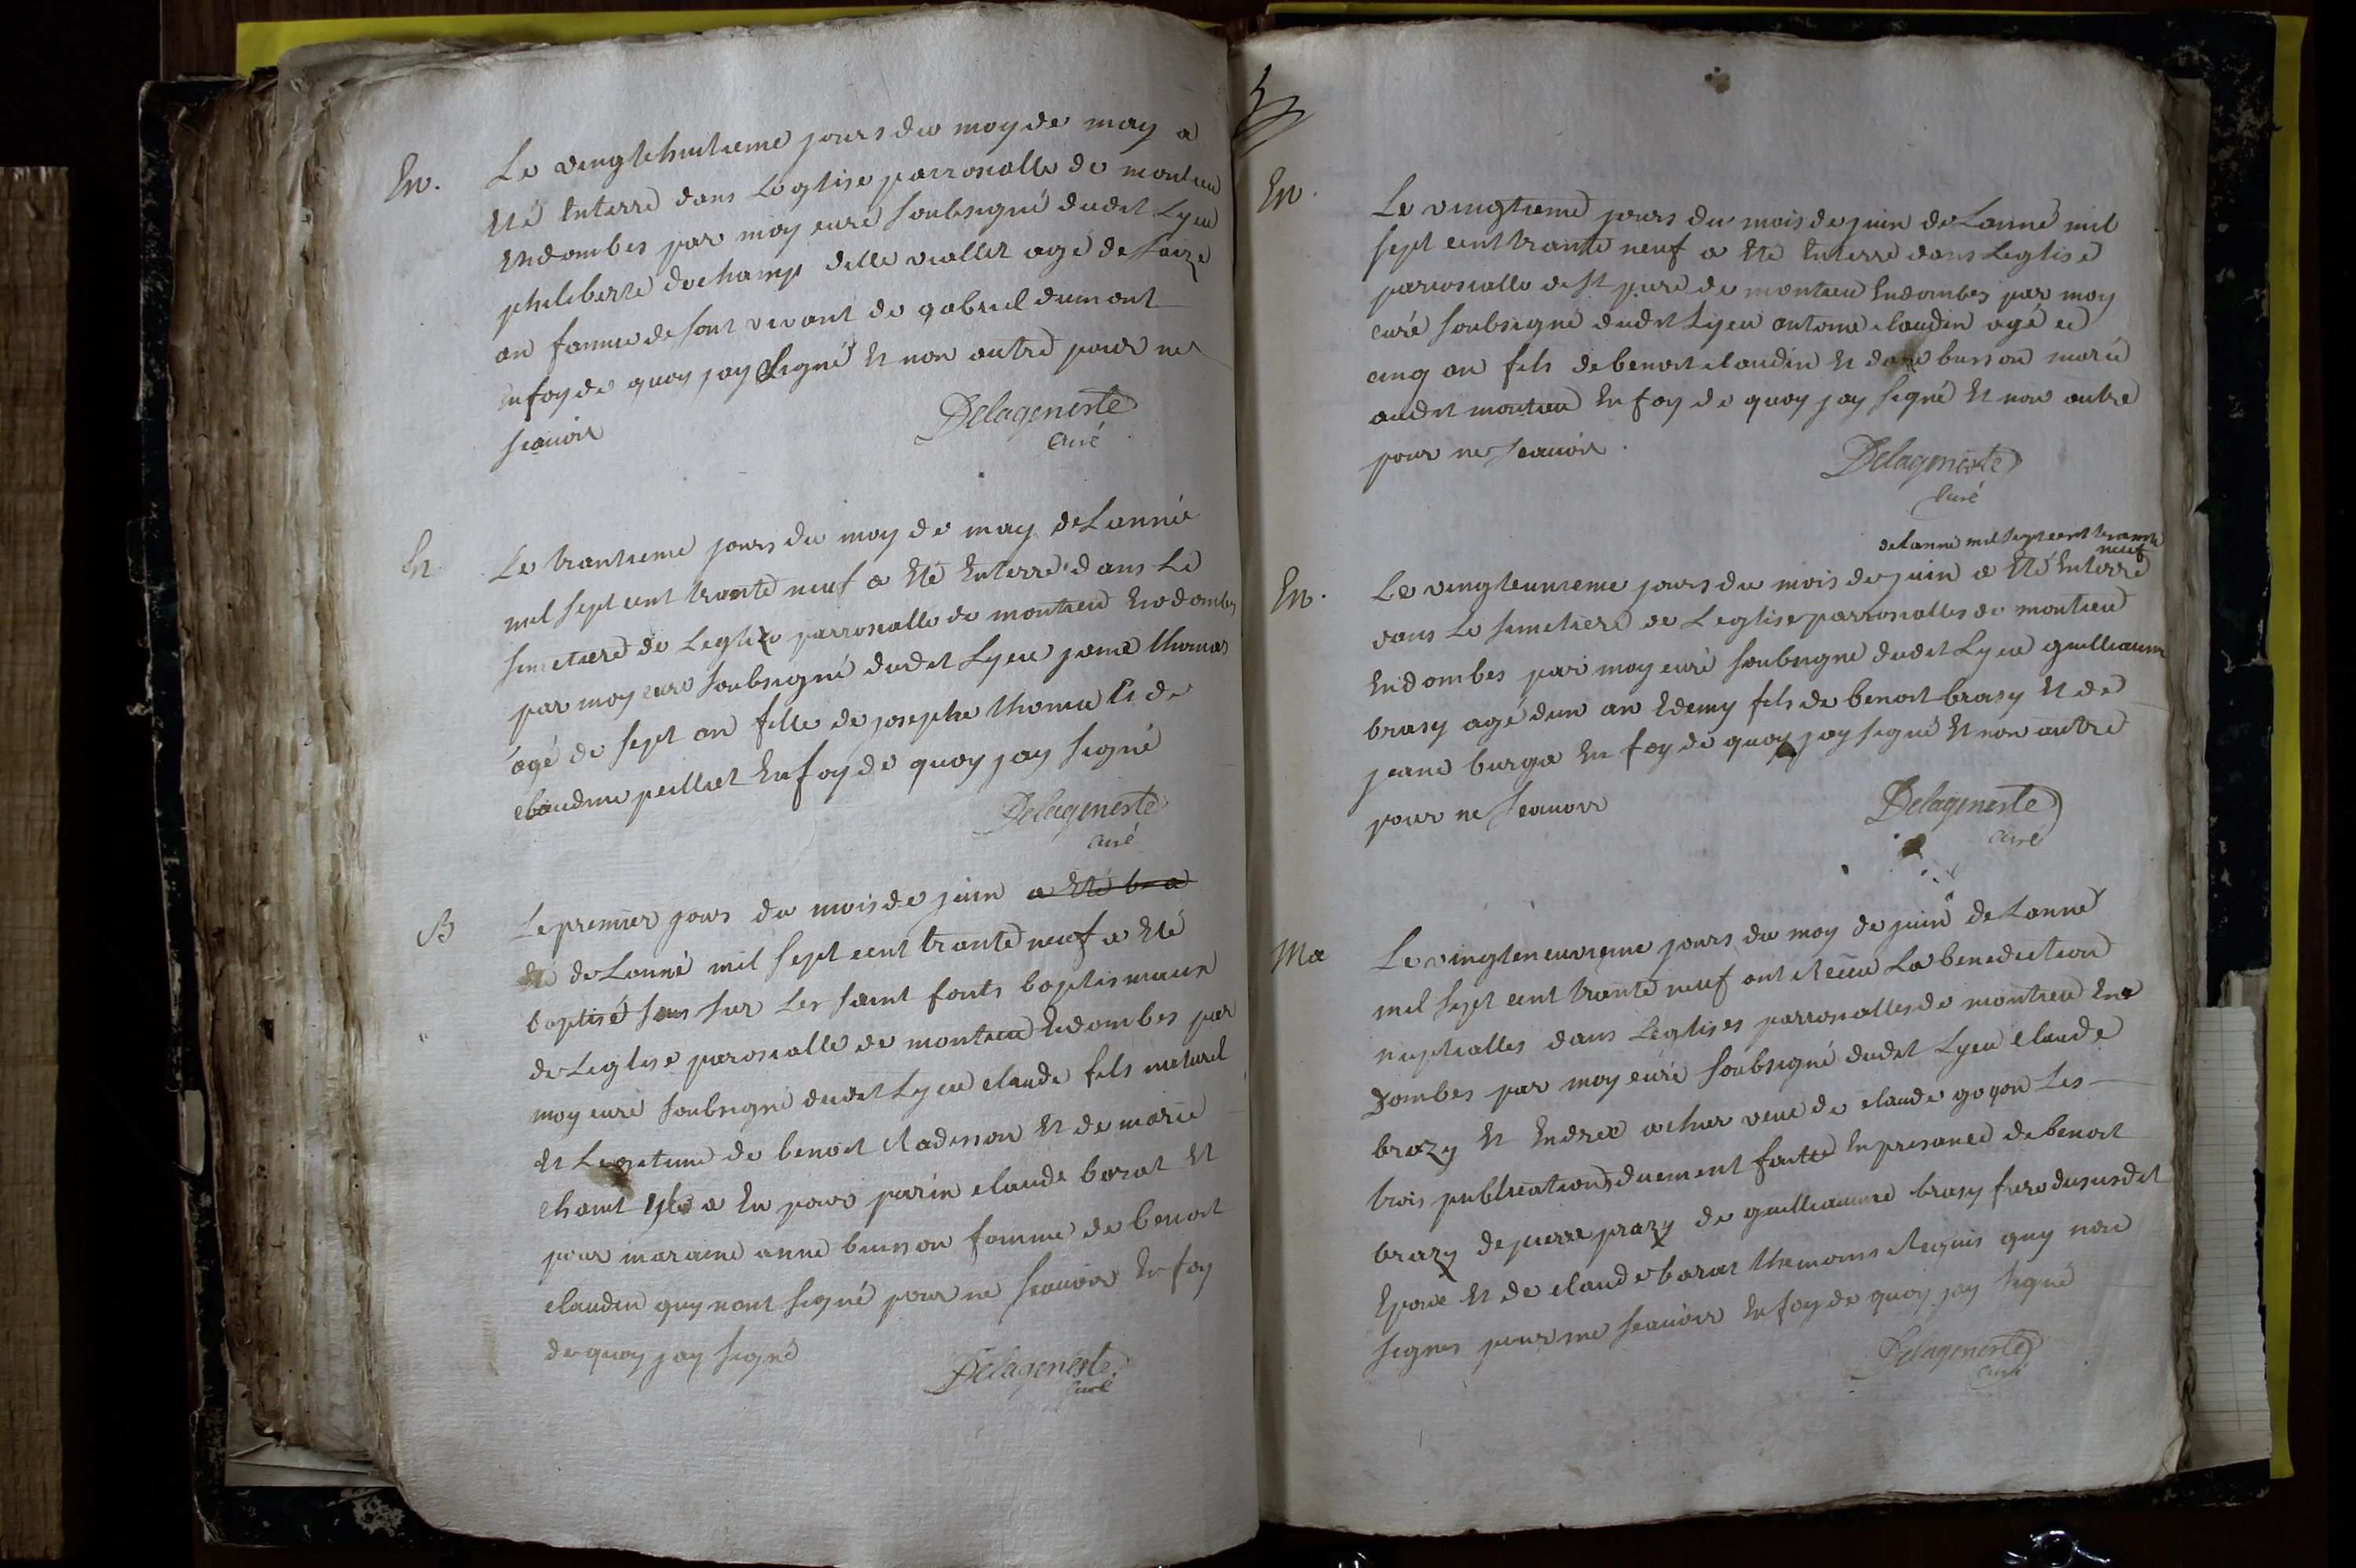 En.
Le vingt huitieme jours du moy de may a
Eté Enterré dans Leglise parrosialle de montieu
Endombes par moy curé soubsigné dudit Lyeu
philiberte duchamp ditte viallet agé de saize
an famme desont vivant de gabriel dumont
En foy de quoy jay signé Et non autre pour ne
scauoir
Delageneste
Curé
En
Le trantieme jours du moy de may de Lannée
mil sept cent trante neuf a Eté Enterré dans Le
simetiere de Leglize parrosialle de montieu Endombes
par moy curé soubsigné dudit Lyeu jeanne thomas
agé de sept an fille de josephe thomas Et de
claudine peilliet En foy de quoy jay signé
Delageneste
curé
B
Le premier jours du mois de juin a Eté ba
de Lanné mil sept cent trante neuf a Eté
baptisé sur Les saint fonts baptismaux
de Leglise parosialle de montieu Endombes par
moy curé soubsigné dudit Lyeu claude fils naturel
Et Legetime de benoit Radisson Et de marie
a Eu pour parin claude barat Et
pour maraine anne buisson famme de benoit
claudin quy nont signé pour ne scauoir En foy
de quoy jay signé
Delageneste
Curé
En.
Le vingtieme jours du mois de juin de Lanné mil
sept cent trante neuf a Eté Enterré dans Leglise
parrosialle de st piere de montieu Endombes par moy
curé soubsigné dudit Lyeu antoine claudin agé de
cinq an fils de benoit claudin Et busson marié
audit montieu En foy de quoy jay signé Et non autre
pour ne scauoir.
Delageneste
Curé
de lanné mil sept cent trante
neuf
En.
Le vingteunieme jours du mois de juin a Eté Enterré
dans Le simetiere de Leglise parrosialles de montieu
Endombes par moy curé soubsigné dudit Lyeu guilliaume
brasy agé dun an Edemy fils de benoit brasy Et de
jeane burga En foy de quoy jay signé Et non autre
pour ne scauoir
Delageneste
Curé
Ma
Le vingteneuvieme jours du moy de juin de Lanné
mil sept cent trante neuf ont Receu La benediction
nuptialles dans Leglises parrosialles de montieu En
Dombes par moy curé soubsigné dudit Lyeu claude
brazy Et veuve de claude goyon Les
trois publications duement faitte En presance de benoit
brazy de pierre prazy de guilliaume brasy frere dususdit
Epoux Et de claude barat themoins Requis quy non
signes pour ne scauoir En foy de quoy jay signé
Delageneste
curé